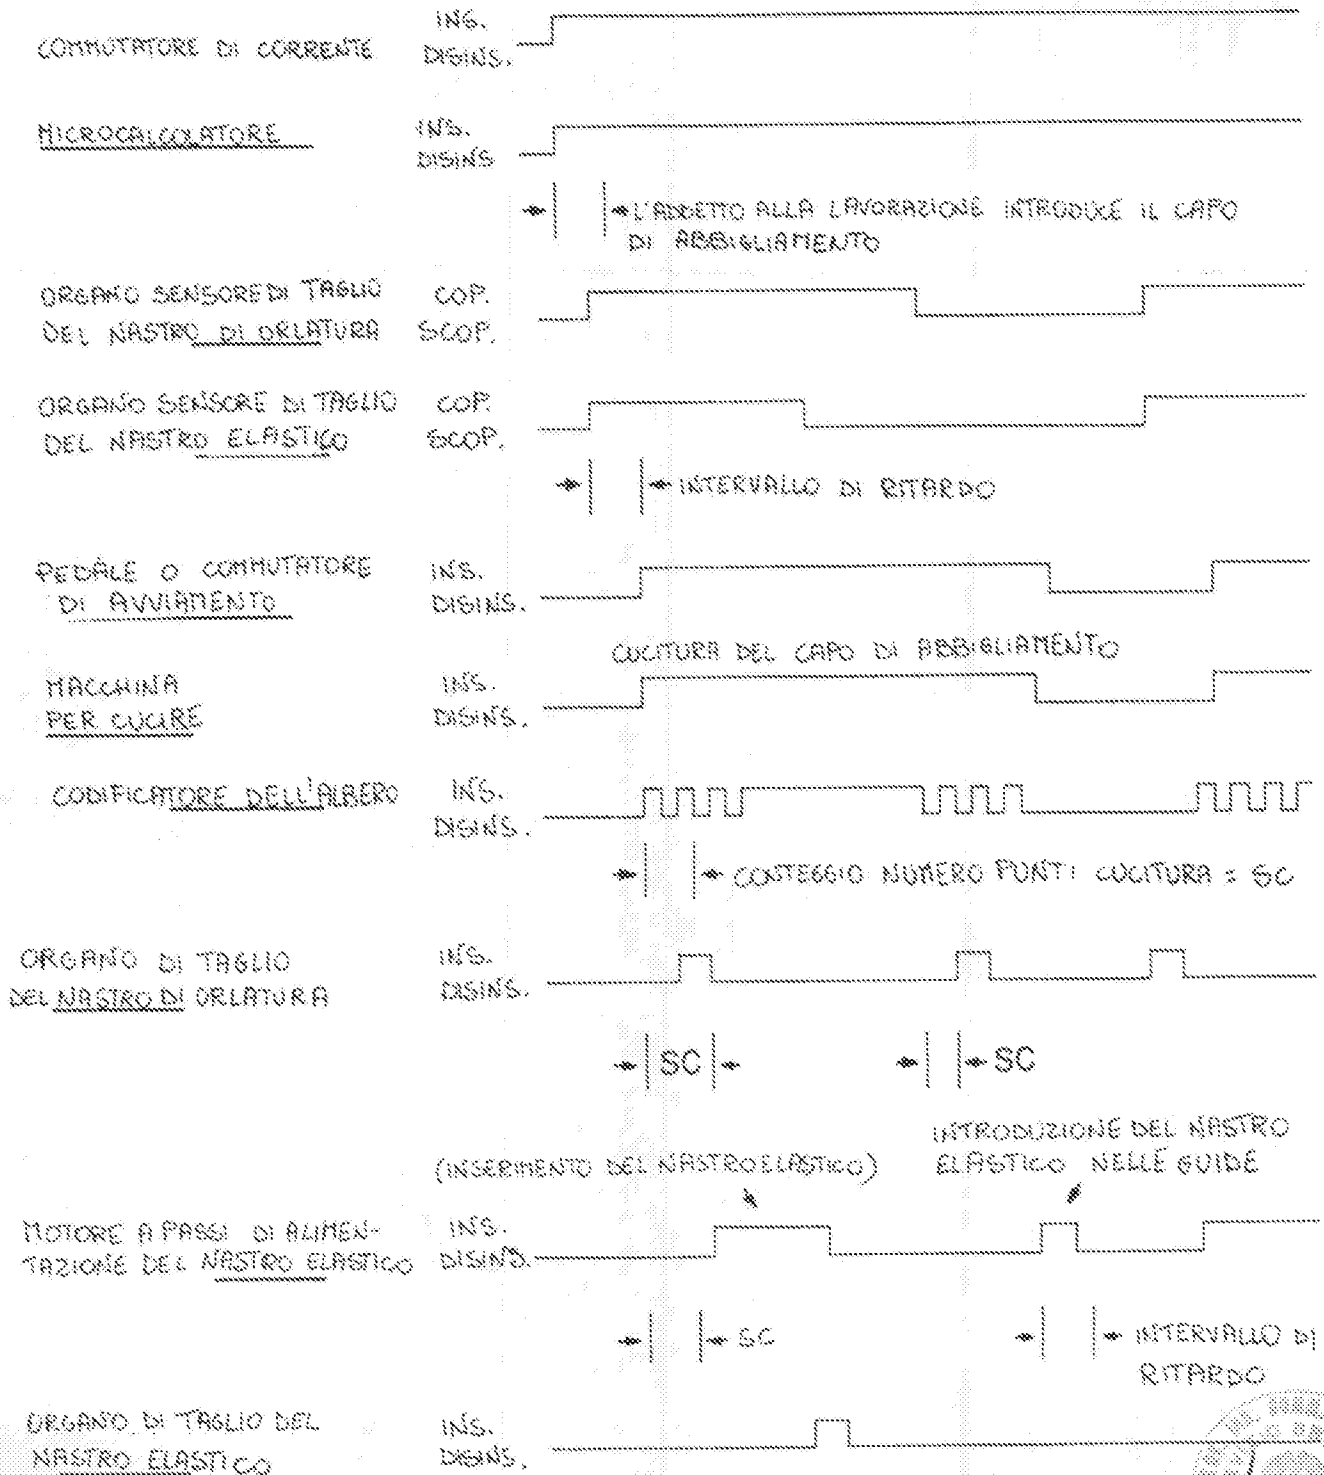 ING.
COMMUTATORE DI CORRENTE
DISINS.
INS.
MICROCALCOLATORE
DISINS
L'ADDETTO ALLA LAVORAZIONE INTRODUCE IL CAPO
DI ABBIGLIAMENTO
ORGANO SENSORE DI TAGLIO COP.
DEL NASTRO DI ORLATURA SCOP.
ORGANO SENSORE DI TAGLIO COP.
DEL NASTRO ELASTICO SCOP.
INTERVALLO DI RITARDO
PEDALE O COMMUTATORE INS.
DI AVVIAMENTO DISINS.
CUCITURA DEL CAPO DI ABBIGLIAMENTO
MACCHINA INS.
PER CUCIRE DISINS.
CODIFICATORE DELL'ALBERO INS.
DISINS.
CONTEGGIO NUMERO PUNTI CUCITURA = SC
ORGANO DI TAGLIO INS.
DEL NASTRO DI ORLATURA DISINS.
SC SC
INTRODUZIONE DEL NASTRO
(INSERIMENTO DEL NASTRO ELASTICO) ELASTICO NELLE GUIDE
MOTORE A PASSI DI ALIMEN- INS.
TAZIONE DEL NASTRO ELASTICO DISINS.
SC INTERVALLO DI
RITARDO
ORGANO DI TAGLIO DEL INS.
NASTRO ELASTICO DISINS.